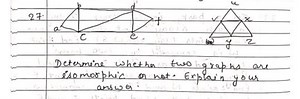 27
b d u
a f v x
c e w y z
Determine whether two graphs are
isomorphic or not. Explain your
answer.